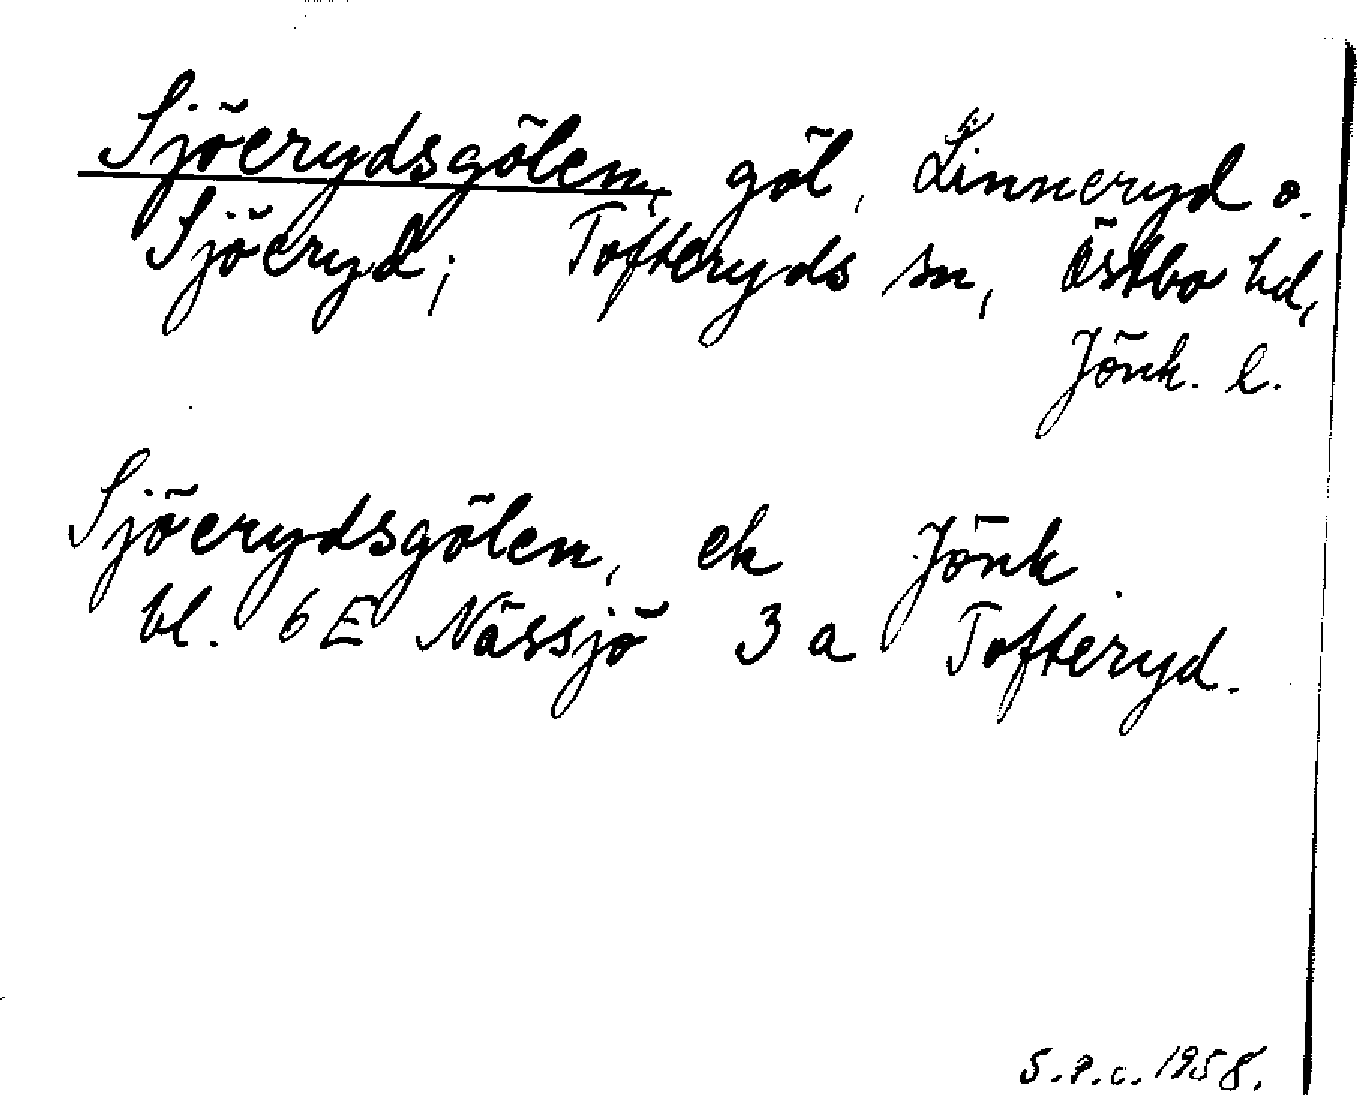 Sjöerydsgölen, göl, Linneryd o.
Sjöeryd; Tofteryds sn, Östbo hd,
Jönk. l.
Sjöerydsgölen, ek Jönk.
bl. 6E Nässjö 3a Tofteryd.
S.P.c. 1958.